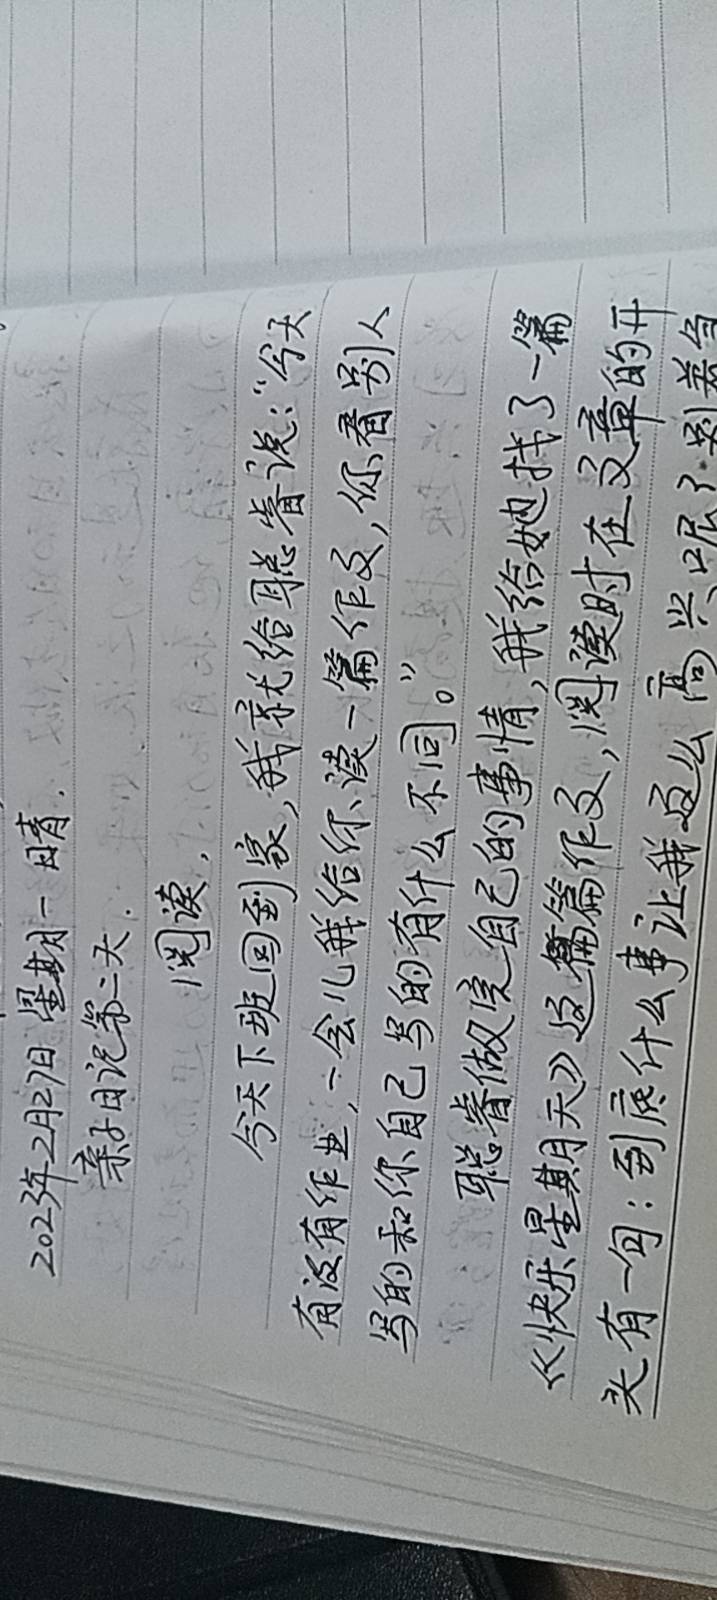 2023年2月27日 星期一 晴.
亲子日记第二天.
阅读.
今天下班回到家,我就给聪睿说:“今天
有没有作业,一会儿我给你读一篇作文,你看别人
写的和你自己写的有什么不同。”
聪睿做完自己的事情,我给她找了一篇
《快乐星期天》这篇篇作文,阅读时在文章的开
头有一句:到底什么事让我这么高兴呢?别着急